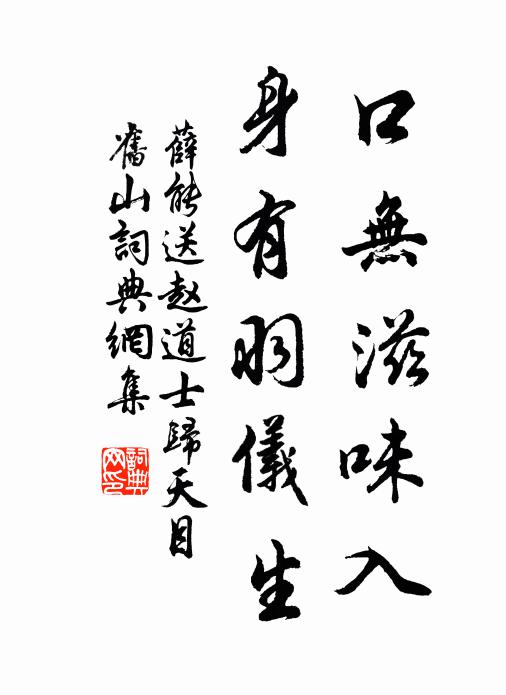 口無滋味入
身有羽儀生
薛能送赵道士歸天目
舊山詞典網集
詞典网印